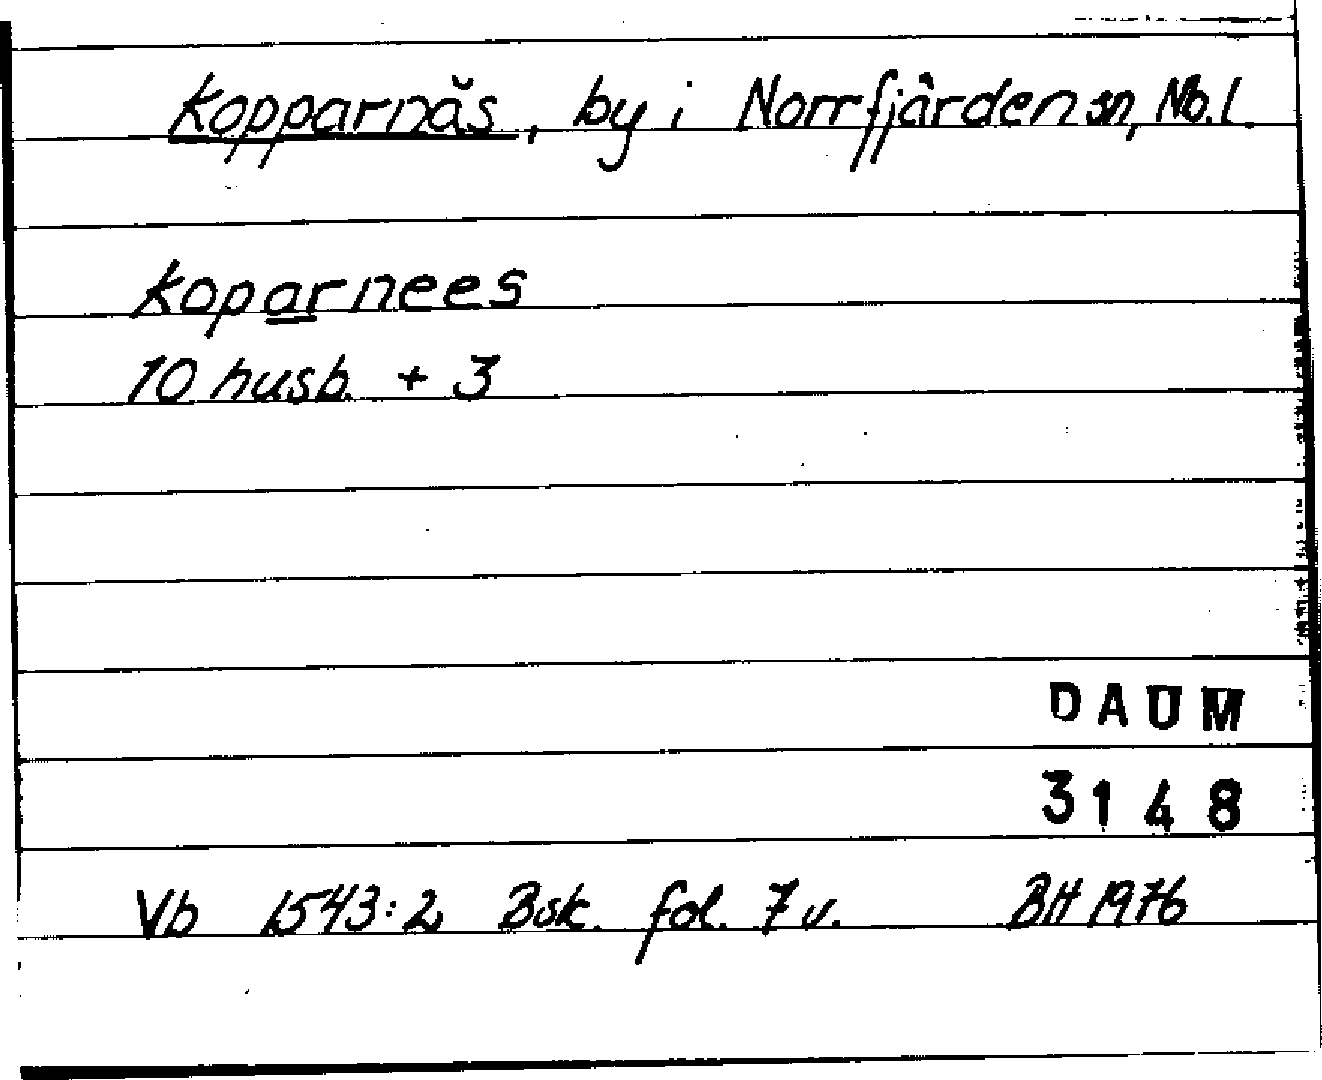 Kopparnäs, by i Norrfjärden sn, Nb.l.
Koparnees
10 husb. + 3
DAUM
3148
Vb 1543:2 Bsk. fol. 7 v. BH 1976